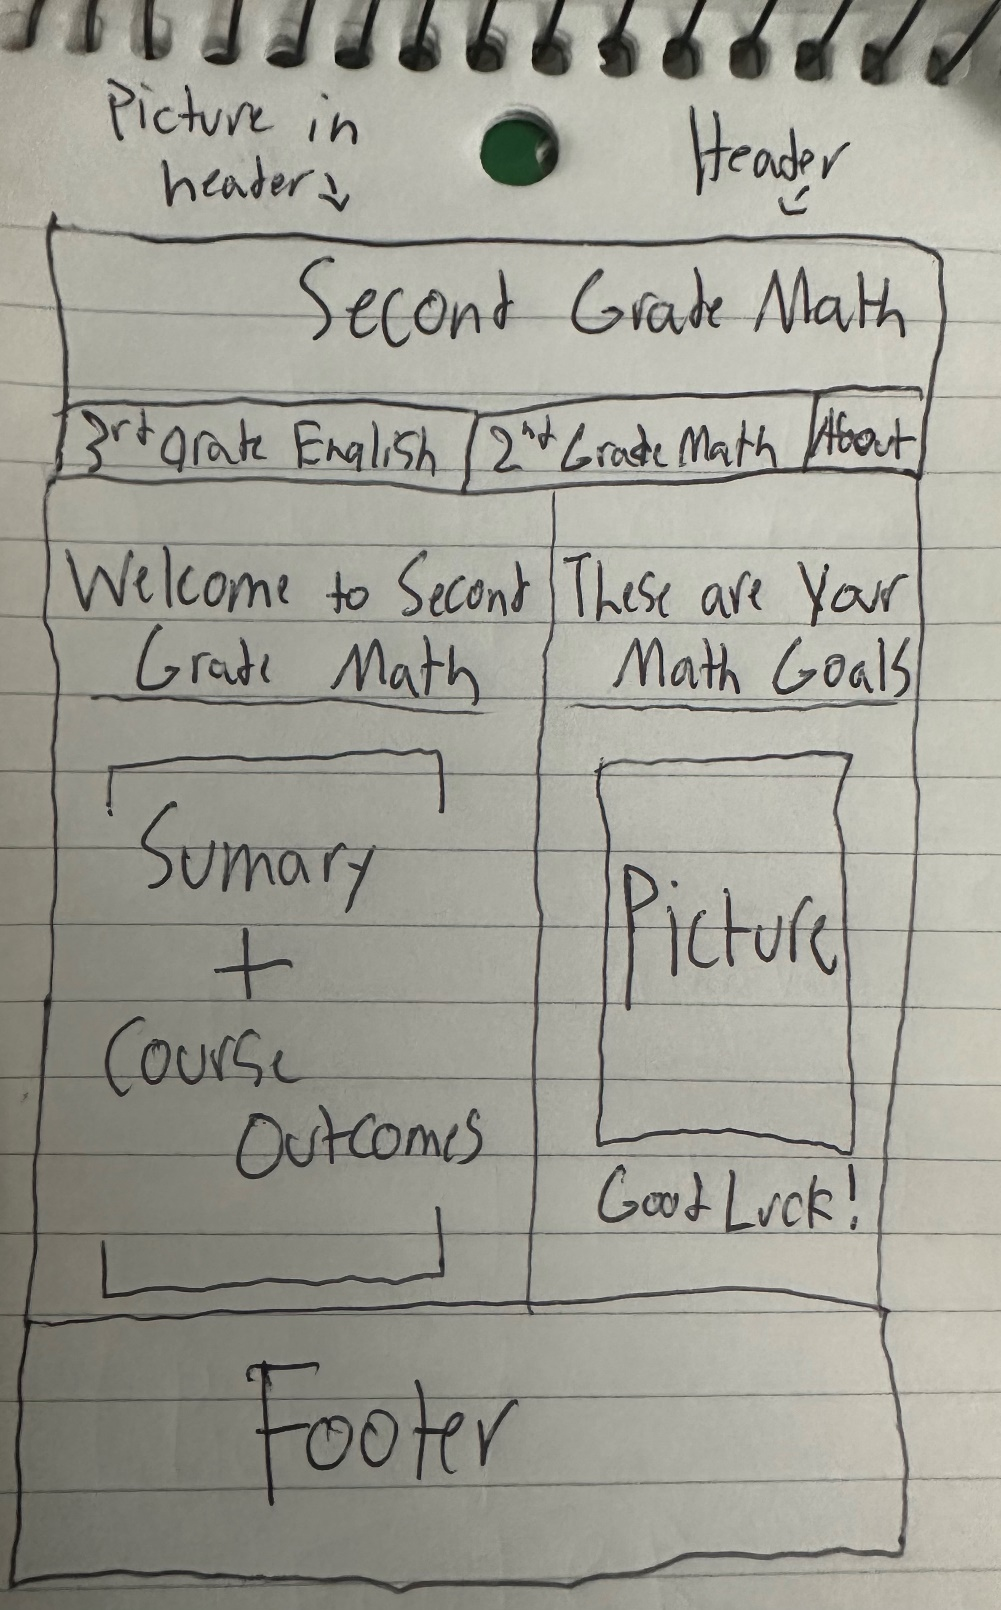 Picture in
header
Header
Second Grade Math
3rd Grade English
2nd Grade Math
About
Welcome to Second
Grade Math
These are Your
Math Goals
Sumary
+
Course
Outcomes
Picture
Good Luck!
Footer